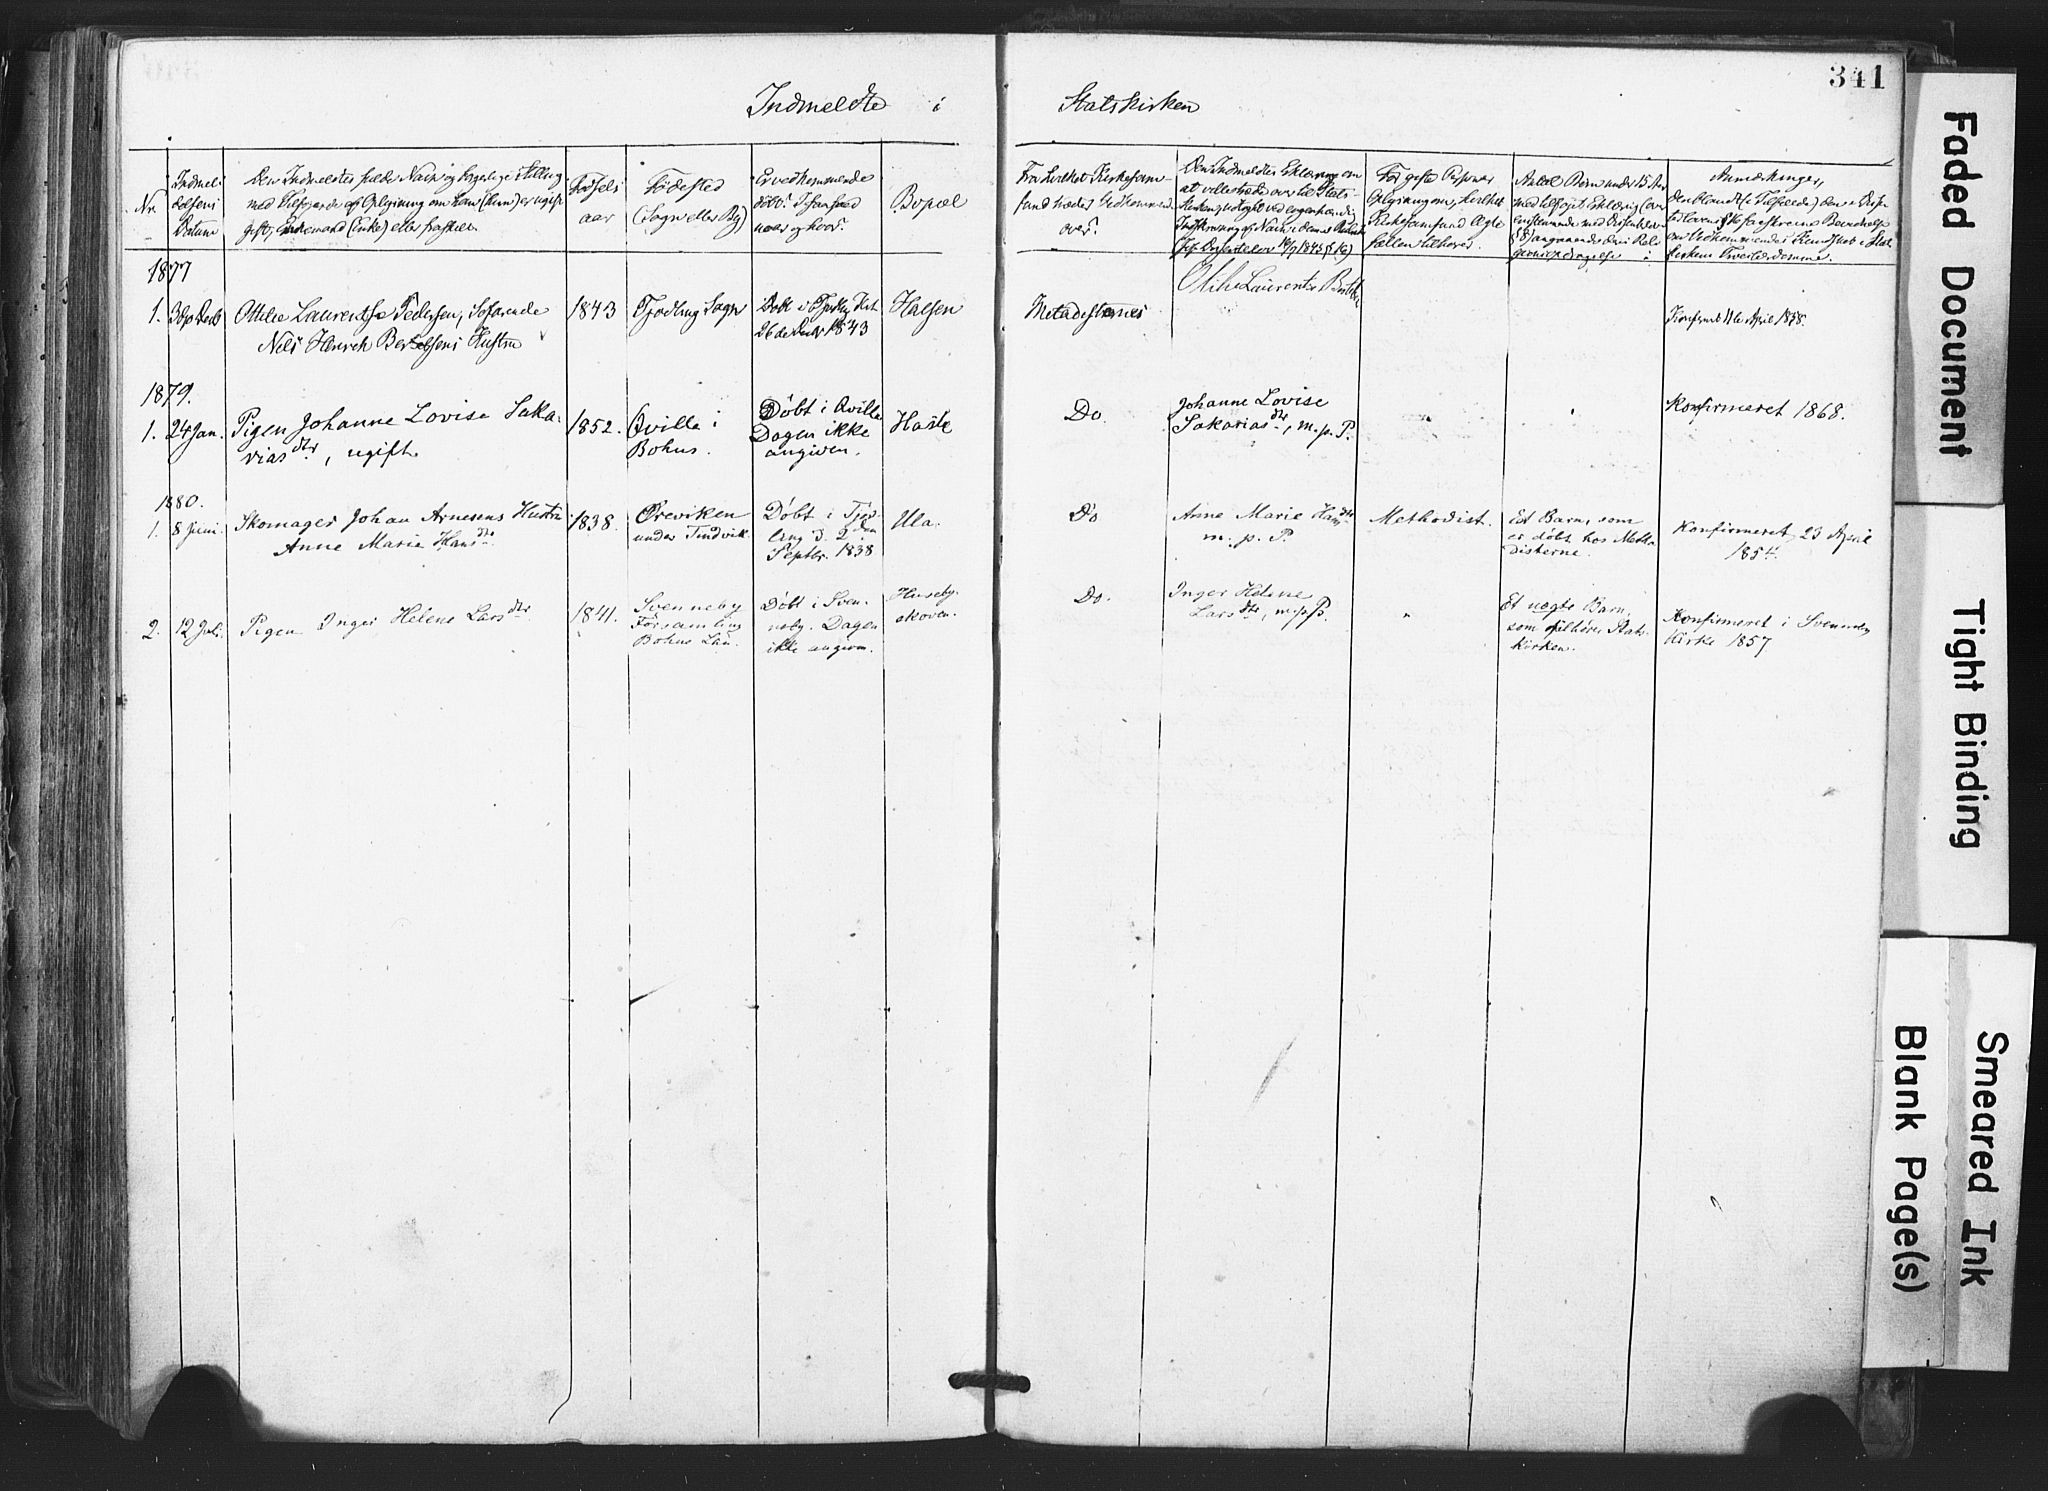 341
Indmeldte i Statskirken
Nr.
Indmel-
delsens
Datum
Den Indmeldtes fulde Navn og borgerlige Stilling
med Tilføiende af Oplysning om han (hun) er ugift
gift, Enkemand (Enke) eller fraskilt.
Fødsels
aar
Fødested
(Sogn eller By)
Er vedkommende
døbt? I saafald
naar og hvor?
Bopæl
Fra hvilket Kirkesam-
fund træder Vedkommende
over?
Den Indmeldtes Erklæring om
at ville træde over til Stats-
kirken, udtrykt ved egenhændig
Indskrivning af Navn i denne Rubrik
For gifte Personer
Oplysning om, hvilket
Kirkesamfund Ægte-
fællen tilhører.
Antal Børn under 15 Aar
med tilføiet Erklæring (over
angaaende deres Reli-
gionsopdragelse
Anmærkninger,
1877
1. Ottilie Laurentse Pedersen, Søfarende
Nils Henrich Bertelsens Hustru
1843
Tjødling Sogn
26de 1843
Halsen
Metodisternes
Konfirmt 11te April 1858.
1879.
1. 24 Jan. Pigen Johanne Lovise Saka-
riasdtr, ugift.
1852.
Qville i
Bohus.
Døbt i Qville
Dagen ikke
angiven.
Haslé
Do
Johanne Lovise
Sakariasdtr, m. p. P.
"
"
Konfirmeret 1868.
1880.
1. 8 Juni. Skomager Johan Arnesens Hustru
Anne Marie Hansdtr
1838.
under Tindvik
Døbt i Tjød-
ling d. 2den
Septbr. 1838
Ula.
Do
Anne Marie Hansdtr
m. p. P.
Methodist.
Et Barn, som
er døbt hos Metho-
disterne.
Konfirmeret 23 April
1854.
2. 12 Juli. Pigen Inger Helene Larsdtr
1841.
Svenneby
Församling
Bohus Län.
Døbt i Sven-
neby. Dagen
ikke angiven.
Huseby-
skoven.
Do.
Inger Helene
Larsdtr, m. p. P.
"
Et uægte Barn,
som tilhører Stats-
kirken.
Konfirmeret i Svenneby
Kirke 1857
Faded Document
Tight Binding
Smeared Ink
Blank Page(s)